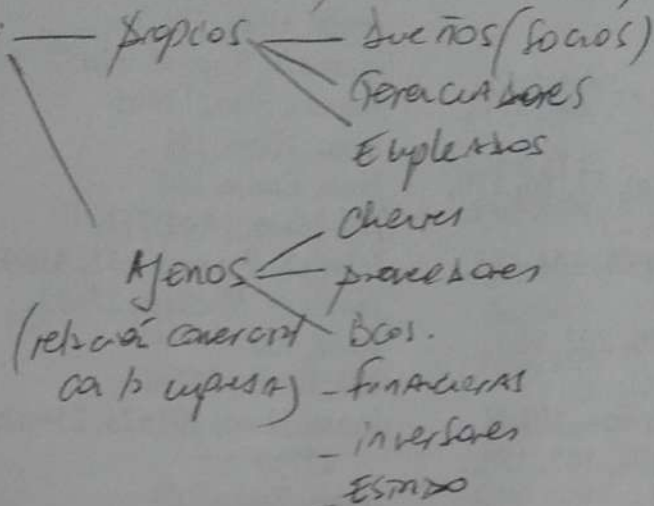 propios
Dueños (socios)
Gerenciadores
Empleados
Ajenos
(relación comercial
con la empresa)
Clientes
proveedores
Bcos.
- financieras
- inversores
Estado